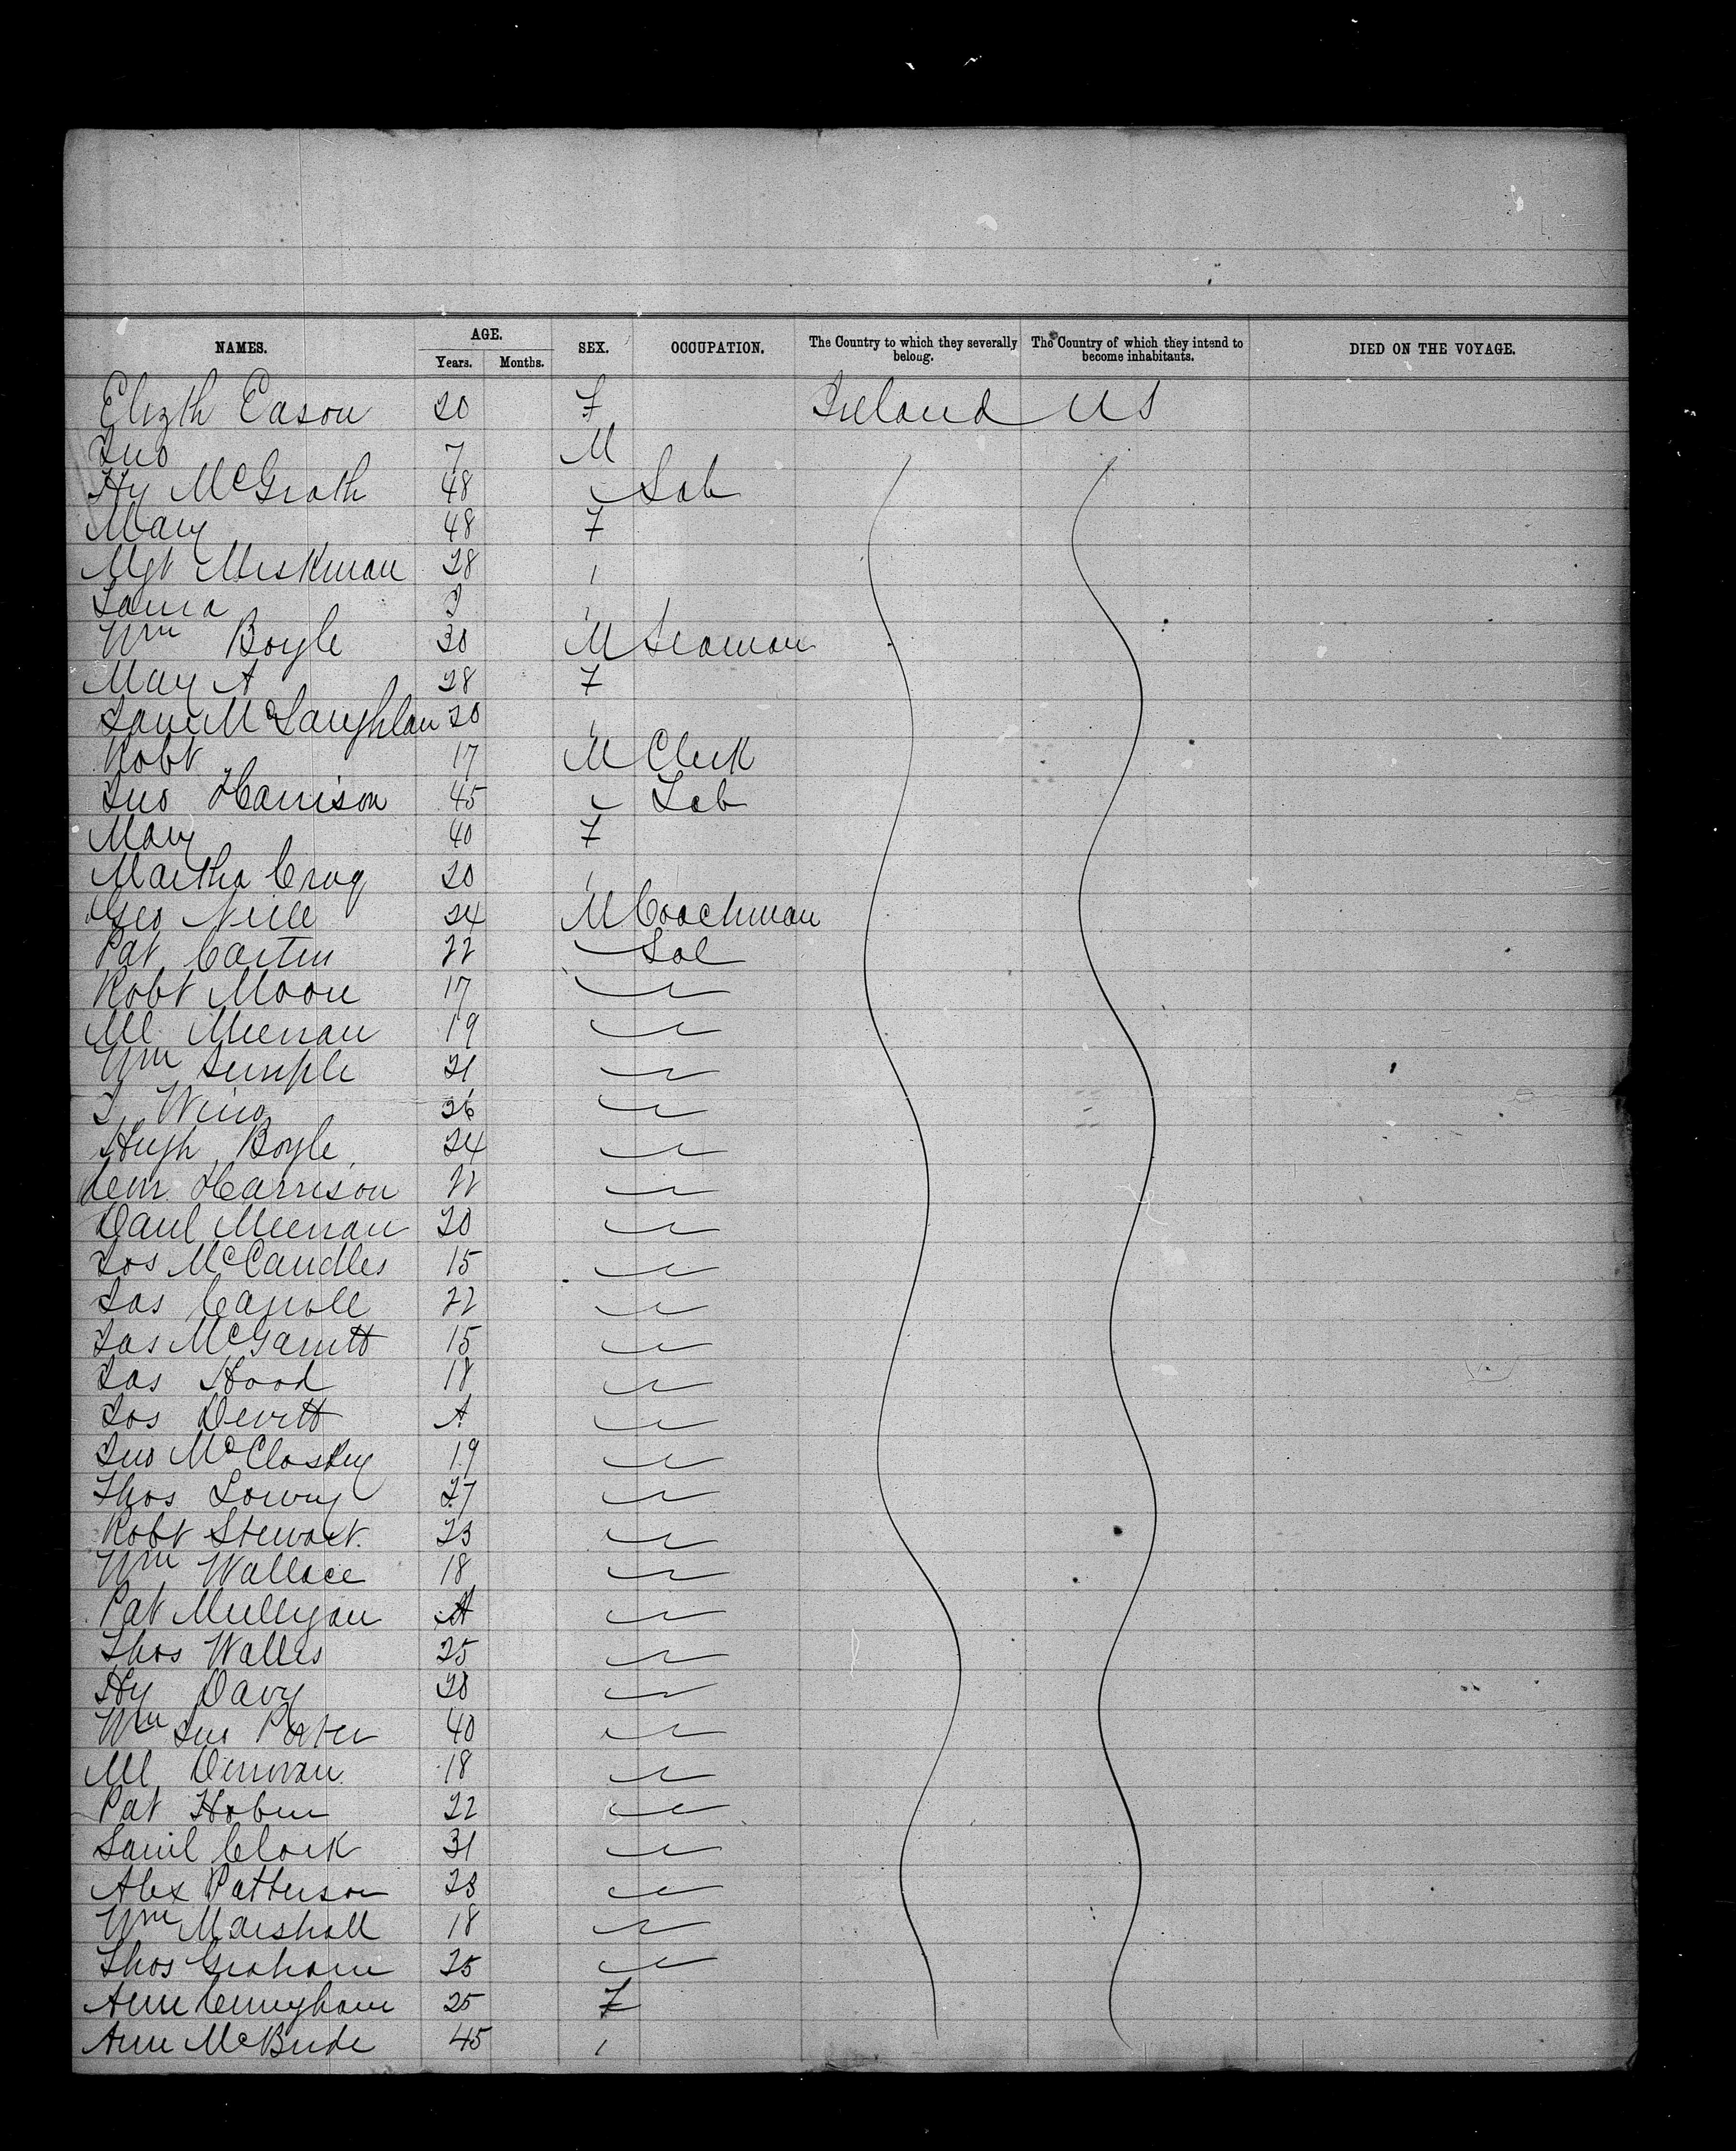 NAMES. AGE. SEX. OCCUPATION. The Country to which they severally belong. The Country of which they intend to become inhabitants. DIED ON THE VOYAGE.
Years. Months.
Elizth Eason 20 F Ireland US
Jno 7 M
Hy McGrath 48 " Lab
Mary 48 F
Mgt Meskman 28 "
3 "
Wm Boyle 30 M Seaman
Mary A 28 F
Jane McLaughlan 20 "
Robt 17 M Clerk
Jno Harrison 45 " Lab
Mary 40 F
Martha Crag 20 "
Geo Neill 24 M Coachman
Pat Carten 22 " Lab
Robt Moore 17 " "
Ml Meenan 19 " "
Wm Semple 21 " "
26 " "
Hugh Boyle 24 " "
Harrison 22 " "
Danl Meenan 20 " "
Jos McCandles 15 " "
Jas Carroll 22 " "
Jas McGarritt 15 " "
Jas Hood 18 " "
Jos Devitt A " "
Jno McCloskey 19 " "
Thos Lowry 27 " "
Robt Stewart 23 " "
Wm Wallace 18 " "
Pat Mulligan A " "
Thos Walles 25 " "
Hy Davy 20 " "
Wm Jno Porter 40 " "
Ml Donovan 18 " "
Pat Hoben 22 " "
Saml Clark 31 " "
Alex Patterson 23 " "
Wm Marshall 18 " "
Thos Graham 25 " "
Ann Cunnyham 25 F
Ann McBride 45 "